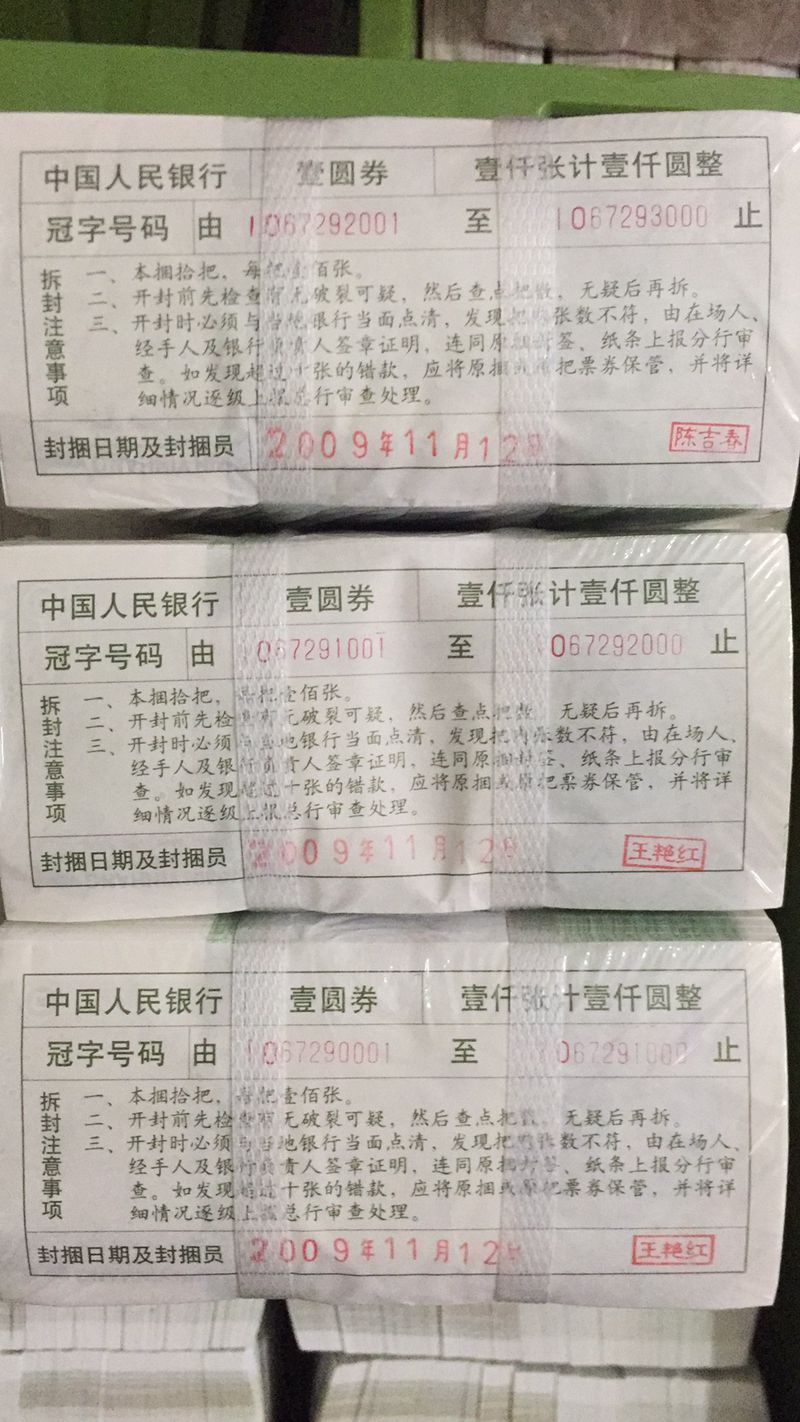 中国人民银行 壹圆券 壹仟张计壹仟圆整
冠字号码 由 1067292001 至 1067293000 止
拆封注意事项
一、本捆拾把，每把壹佰张。
二、开封前先检查有无破裂可疑，然后查点把数，无疑后再拆。
三、开封时必须与当地银行当面点清，发现把内张数不符，由在场人、
经手人及银行负责人签章证明，连同原捆封签、纸条上报分行审
查。如发现超过十张的错款，应将原捆或原把票券保管，并将详
细情况逐级上报总行审查处理。
封捆日期及封捆员 2009年11月12日 陈吉春
中国人民银行 壹圆券 壹仟张计壹仟圆整
冠字号码 由 1067291001 至 1067292000 止
拆封注意事项
一、本捆拾把，每把壹佰张。
二、开封前先检查有无破裂可疑，然后查点把数，无疑后再拆。
三、开封时必须与当地银行当面点清，发现把内张数不符，由在场人、
经手人及银行负责人签章证明，连同原捆封签、纸条上报分行审
查。如发现超过十张的错款，应将原捆或原把票券保管，并将详
细情况逐级上报总行审查处理。
封捆日期及封捆员 2009年11月12日 王艳红
中国人民银行 壹圆券 壹仟张计壹仟圆整
冠字号码 由 1067290001 至 1067291000 止
拆封注意事项
一、本捆拾把，每把壹佰张。
二、开封前先检查有无破裂可疑，然后查点把数，无疑后再拆。
三、开封时必须与当地银行当面点清，发现把内张数不符，由在场人、
经手人及银行负责人签章证明，连同原捆封签、纸条上报分行审
查。如发现超过十张的错款，应将原捆或原把票券保管，并将详
细情况逐级上报总行审查处理。
封捆日期及封捆员 2009年11月12日 王艳红